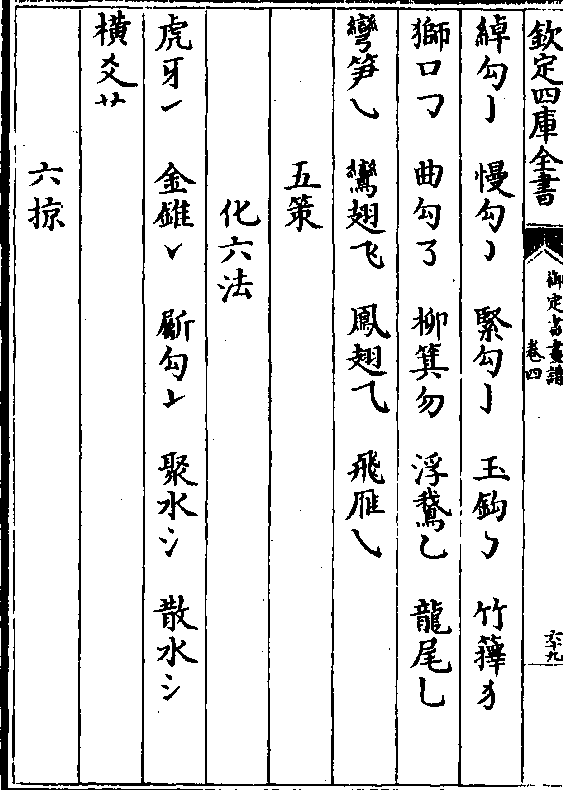 欽定四庫全書
御定書畫譜
卷四
六十九
綽勾亅 慢勾 緊勾亅 玉鈎 竹籜
獅口 曲勾 柳箕勿 浮鵞乙 龍尾乚
彎笋㇏ 鸞翅飞 鳳翅⺄ 飛雁㇏
五策
化六法
虎牙 金錐 㔉勾 聚水氵 散水氵
橫爻艹
六掠